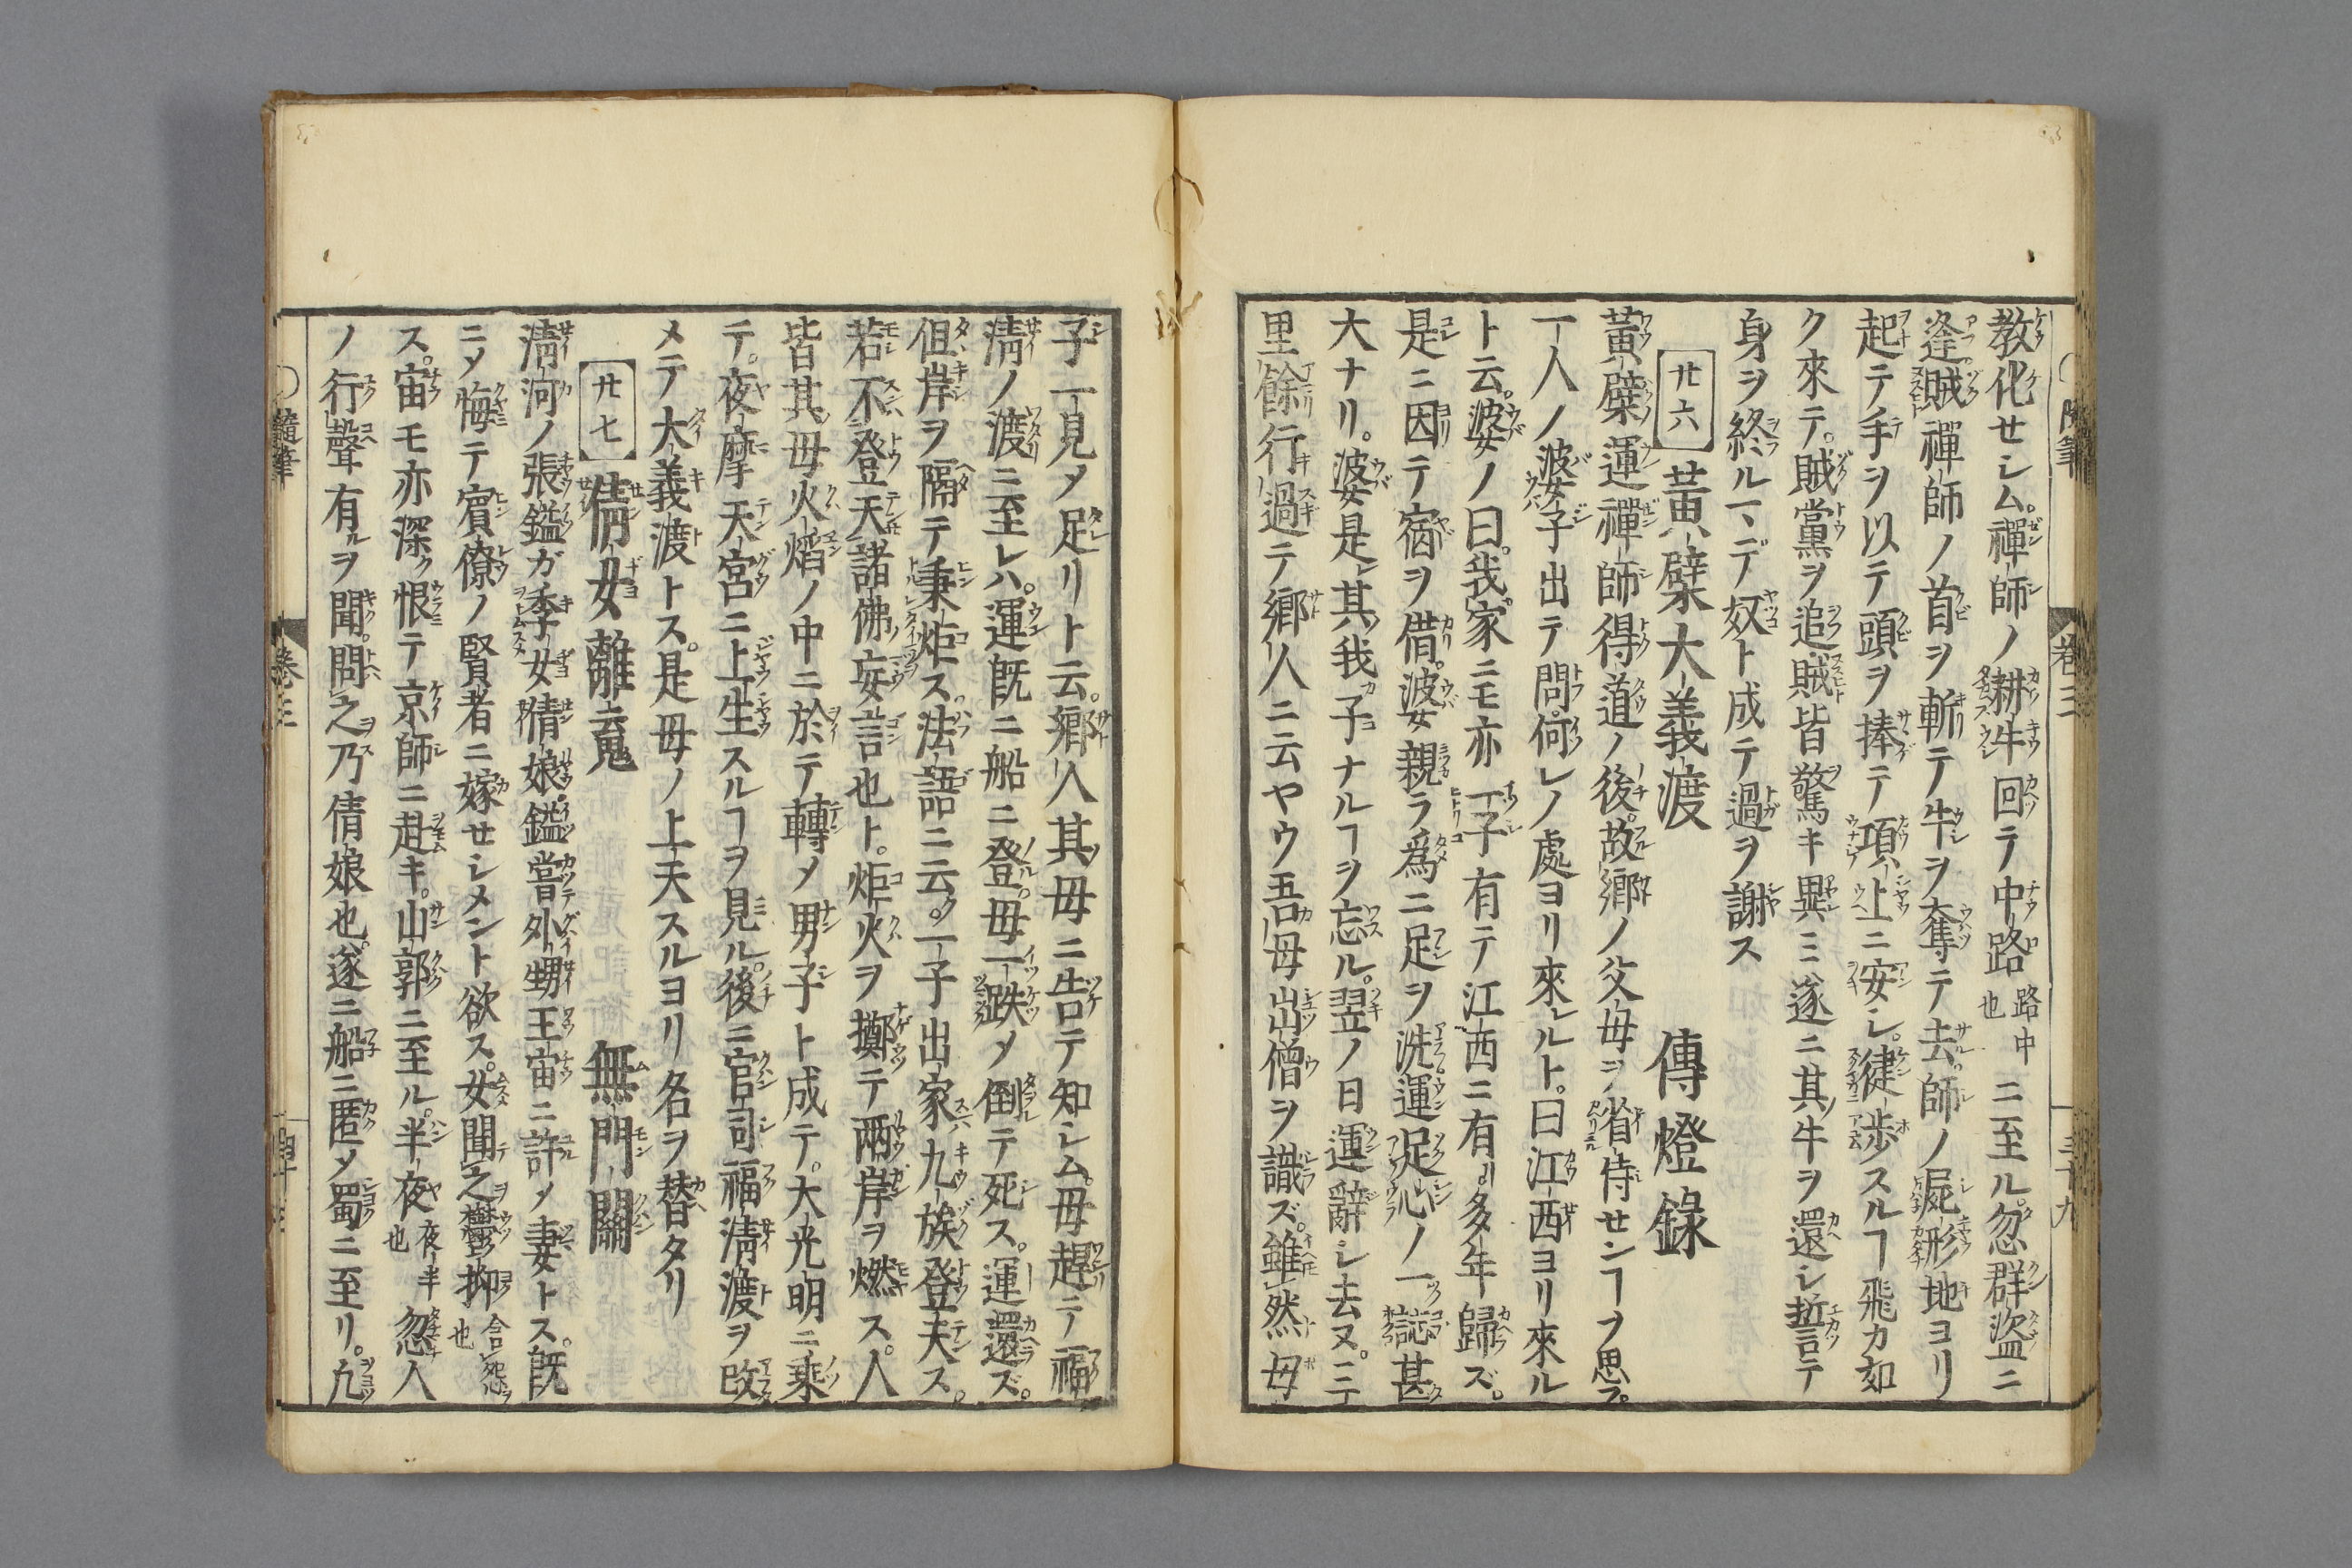 教化セシム。禪師ノ耕牛回テ中路路中也ニ至ル。忽群盗ニ
逢。賊禪師ノ首ヲ斬テ牛ヲ奪テ去。師ノ屍形地ヨリ
起テ手ヲ以テ頭ヲ捧テ項上ニ安シ。徤歩スルヿ飛カ如
ク來テ。賊黨ヲ追。賊皆驚キ異ミ遂ニ其牛ヲ還シ誓テ
身ヲ終ルマデ奴ト成テ過ヲ謝ス
廿六 黄檗大義渡 傳燈錄
黄檗運禪師得道ノ後。故郷ノ父母ヲ省侍センヿヲ思フ。
一人ノ婆子出テ問。何レノ處ヨリ來ルト。曰江西ヨリ來ル
ト云。婆ノ曰。我家ニモ亦一子有テ江西ニ有リ多年歸ズ。
是ニ因テ宿ヲ借。婆親ラ爲ニ足ヲ洗。運足心ノ一誌甚
大ナリ。婆是其我子ナルヿヲ忘ル。翌ノ日運辭シ去ヌ。三
里餘行過テ郷人ニ云ヤウ吾母出僧ヲ識ズ。雖然母
子一見メ足リト云。郷人其母ニ告テ知シム。母趕テ福
淸ノ渡ニ至レハ。運既ニ船ニ登ル。母一跌メ倒テ死ス。運還ズ。
但岸ヲ隔テ秉炬ス。法語ニ云ク。一子出家九族登天ス。
若不登天諸佛妄言也ト。炬火ヲ擲テ兩岸ヲ燃ス。人
皆其母火熖ノ中ニ於テ轉メ男子ト成テ。大光明ニ乗
テ。夜摩天宮ニ上生スルヿヲ見ル。後ニ官司福淸渡ヲ改
メテ大義渡トス。是母ノ上天スルヨリ名ヲ替タリ
廿七 倩女離䰟 無門關
淸河ノ張鎰ガ季女倩娘。鎰嘗外甥王宙ニ許メ妻トス。既
ニメ悔テ賓僚ノ賢者ニ嫁セシメント欲ス。女聞之鬱抑含怨也
ス。宙モ亦深ク恨テ京師ニ赴キ。山郭ニ至ル。半夜夜半也忽人
ノ行聲有ルヲ聞。問之乃倩娘也。遂ニ船ニ匿メ蜀ニ至リ。凢